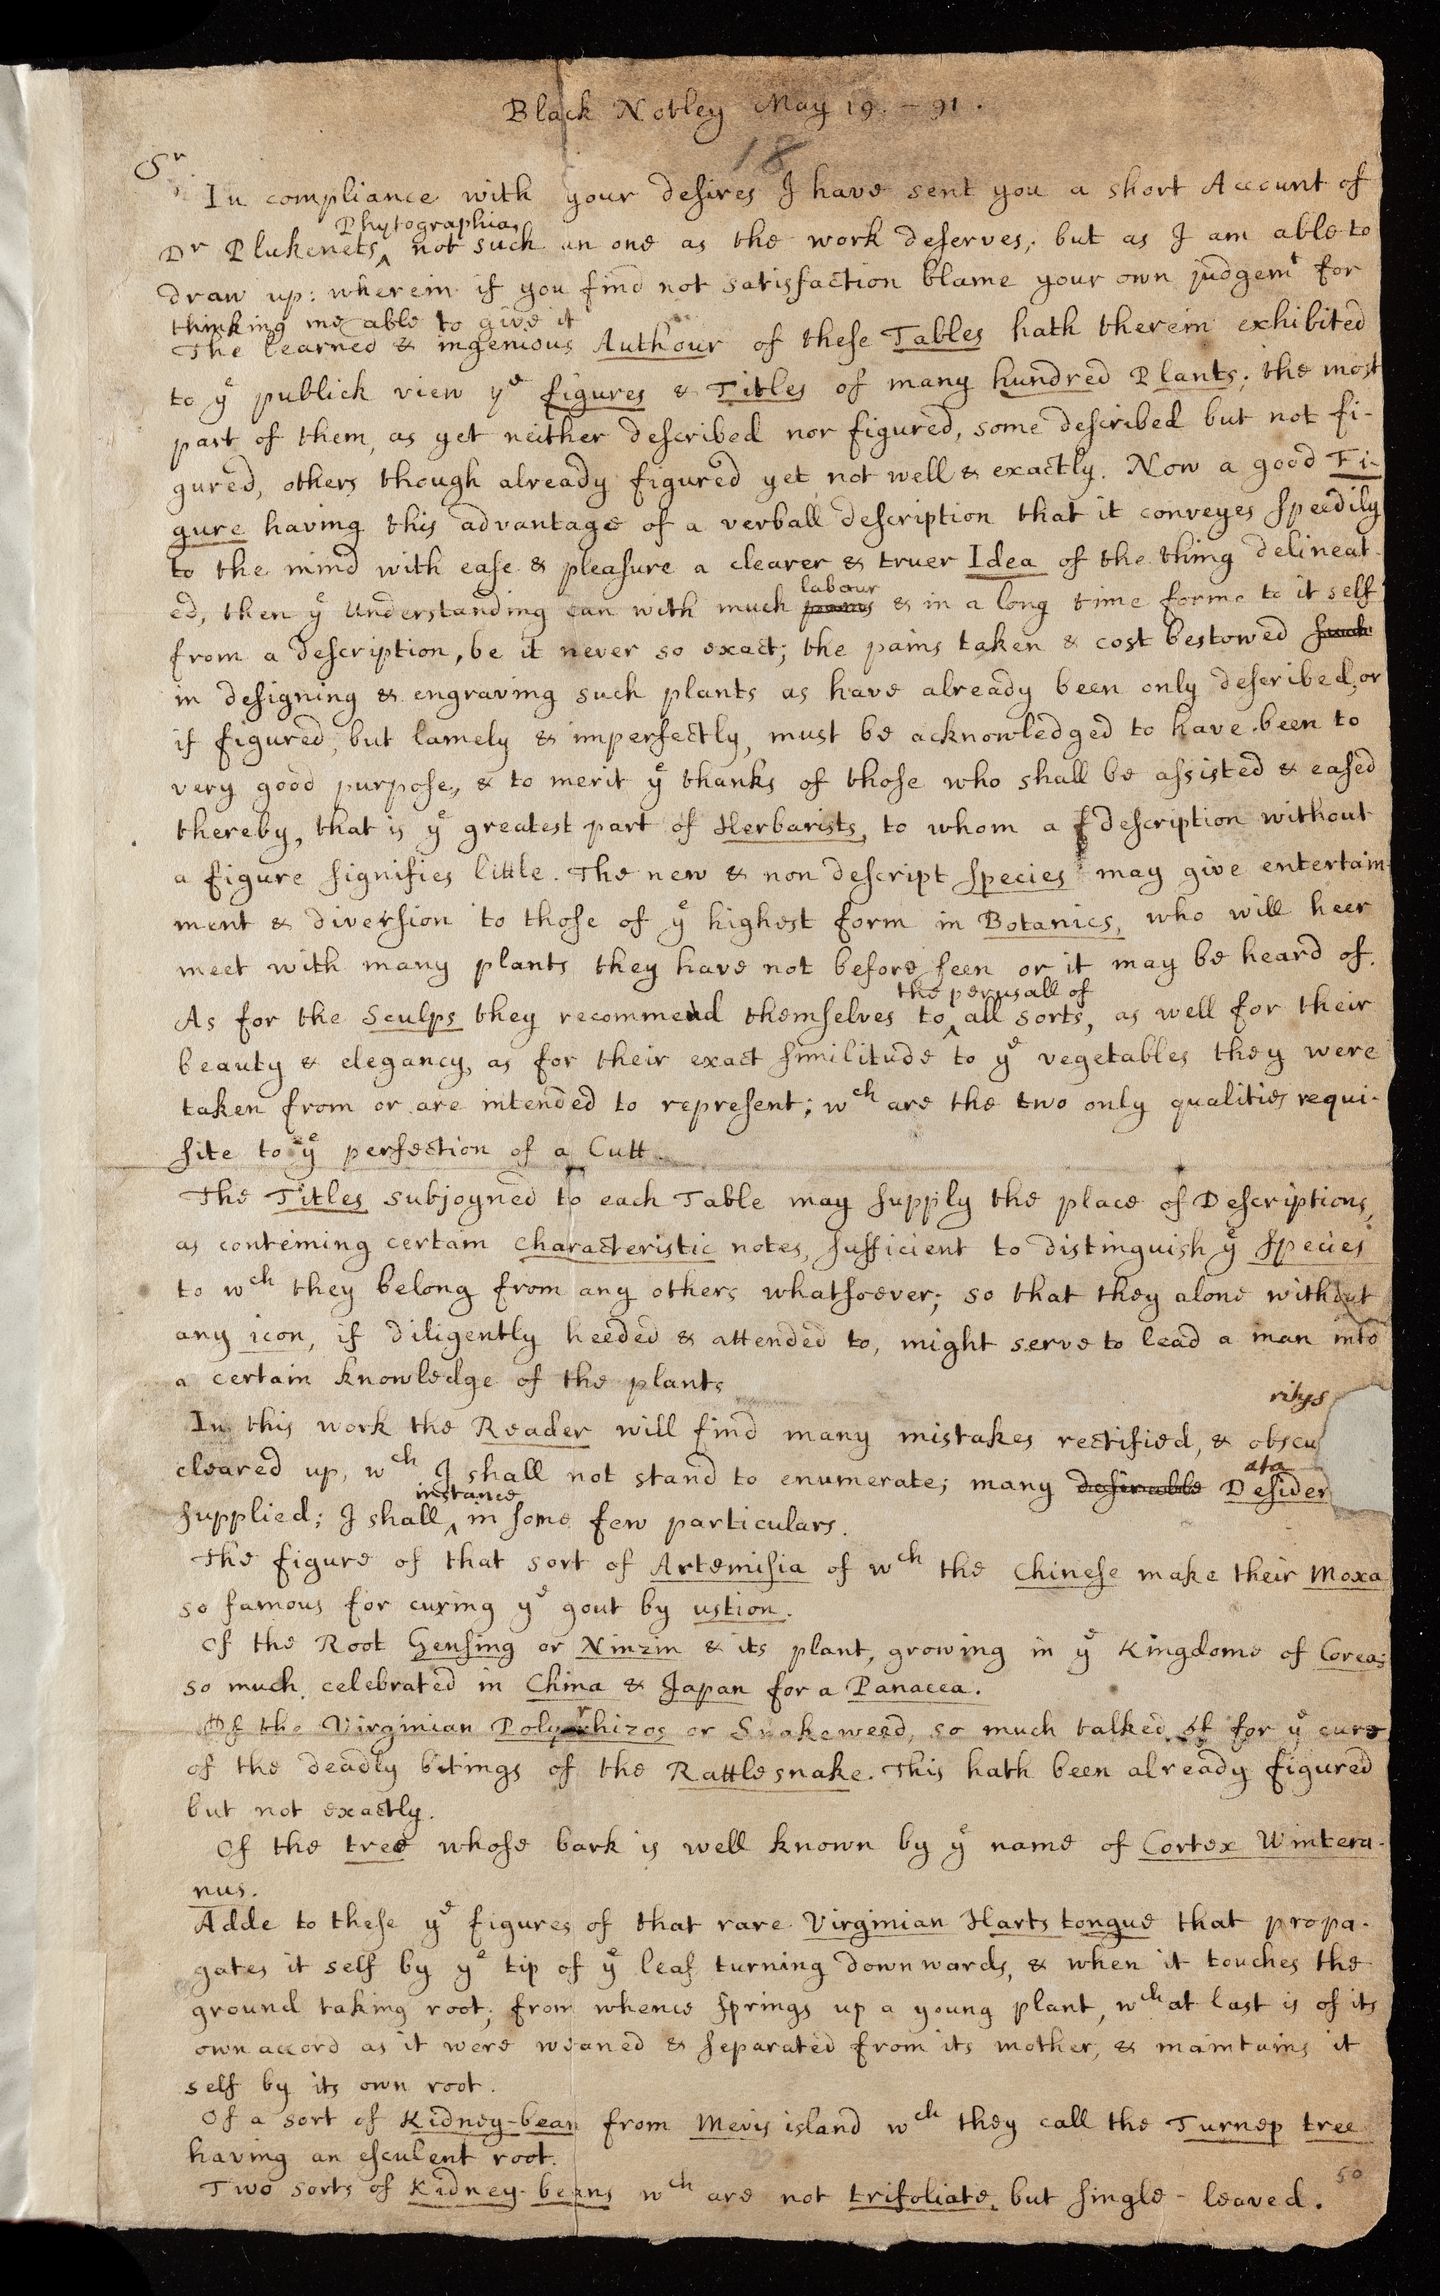 Black Notley May 19. - 91.
18
Sr
In compliance with your desires I have sent you a short Account of
Phytographia,
Dr Plukenets ‸ not such an one as the work deserves, but as I am able to
draw up: wherein if you find not satisfaction blame your own judgemt for
thinking me able to give it
The learned & ingenious Authour of these Tables hath therein exhibited
to ye publick view ye figures & Titles of many hundred Plants; the most
part of them, as yet neither described nor figured, some described but not fi-
gured, others though already figured yet not well & exactly. Now a good Fi-
gure having this advantage of a verball description that it conveyes speedily
to the mind with ease & pleasure a clearer & truer Idea of the thing delineat-
labour
ed, then ye Understanding can with much pains & in a long time forme to it self
from a description, be it never so exact; the pains taken & cost bestowed such
in designing & engraving such plants as have already been only described, or
if figured, but lamely & imperfectly, must be acknowledged to have been to
very good purpose, & to merit ye thanks of those who shall be assisted & eased
thereby, that is ye greatest part of Herbarists, to whom a description without
a figure signifies little. The new & non descript species may give entertain-
ment & diversion to those of ye highest form in Botanics, who will heer
meet with many plants they have not before seen or it may be heard of.
the perusall of
As for the Sculps they recommend themselves to ‸ all sorts, as well for their
beauty & elegancy, as for their exact similitude to ye vegetables they were
taken from or are intended to represent; wch are the two only qualities requi-
site to ye perfection of a Cutt.
The Titles subjoyned to each Table may supply the place of Descriptions,
as conteining certain characteristic notes, sufficient to distinguish ye species
to wch they belong from any others whatsoever; so that they alone without
any icon, if diligently heeded & attended to, might serve to lead a man into
a certain knowledge of the plants
ritys
In this work the Reader will find many mistakes rectified, & obscu
ata
cleared up, wch I shall not stand to enumerate; many desirable Desider
instance
supplied; I shall ‸ in some few particulars.
The figure of that sort of Artemisia of wch the Chinese make their Moxa
so famous for curing ye gout by ustion.
Of the Root Gensing or Ninzin & its plant, growing in ye Kingdome of Corea;
so much celebrated in China & Japan for a Panacea.
Of the Virginian Polyrrhizos or Snakeweed, so much talked of for ye cure
of the deadly bitings of the Rattlesnake. This hath been already figured
but not exactly.
Of the tree whose bark is well known by ye name of Cortex Wintera-
nus.
Adde to these ye figures of that rare Virginian Harts tongue that propa-
gates it self by ye tip of ye leaf turning downwards, & when it touches the
ground taking root; from whence springs up a young plant, wch at last is of its
own accord as it were weaned & separated from its mother, & maintains it
self by its own root.
Of a sort of Kidney-bean from Mevis island wch they call the Turnep tree
having an esculent root.
Two sorts of Kidney-beans wch are not trifoliate, but single-leaved.
50